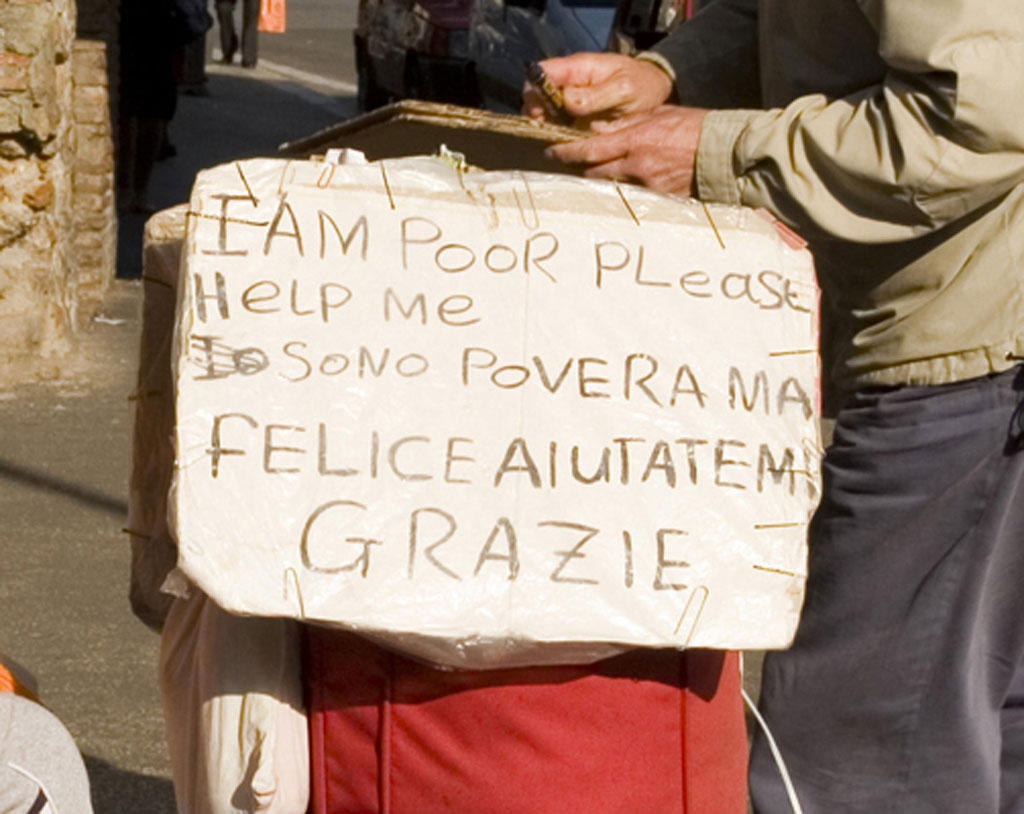 I AM POOR PLeaSE
HeLP Me
Io SONO POVERA MA
FELICE AIUTATEMI
GRAZIE